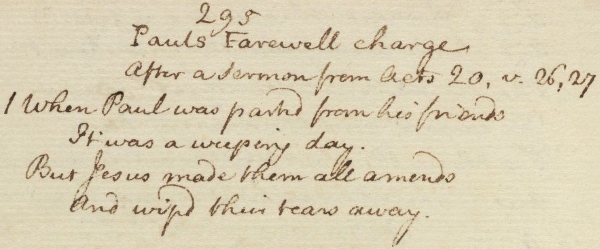 295
Pauls Farewell charge
After a sermon from Acts 20, v. 26, 27
1 When Paul was partd from his friends
It was a weeping day.
But Jesus made them all amends
And wip'd their tears away.